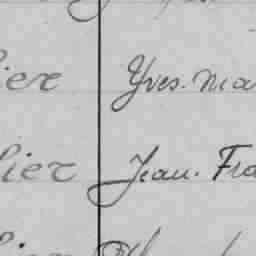 ier Yves. Ma
lier Jean. Fra